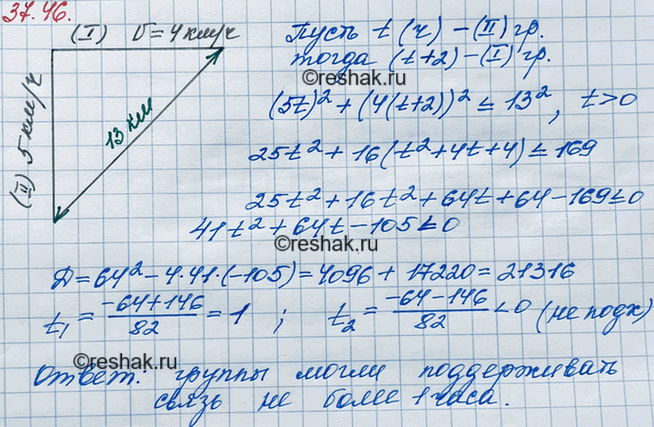 37.46.
(I) V=4 км/ч
(II) 5 км/ч
13 км
Пусть t (ч) – (II) гр.
тогда (t+2) – (I) гр.
(5t)² + (4(t+2))² ≤ 13², t>0
25t² + 16(t²+4t+4) ≤ 169
©reshak.ru
25t² + 16t² + 64t + 64 – 169 ≤ 0
41t² + 64t – 105 ≤ 0
©reshak.ru
D = 64² – 4·41·(–105) = 4096 + 17220 = 21316
t₁ = (–64+146)/82 = 1 ; t₂ = (–64–146)/82 < 0 (не подх)
©reshak.ru
Ответ: группы могли поддерживать
связь не более 1 часа.
©reshak.ru